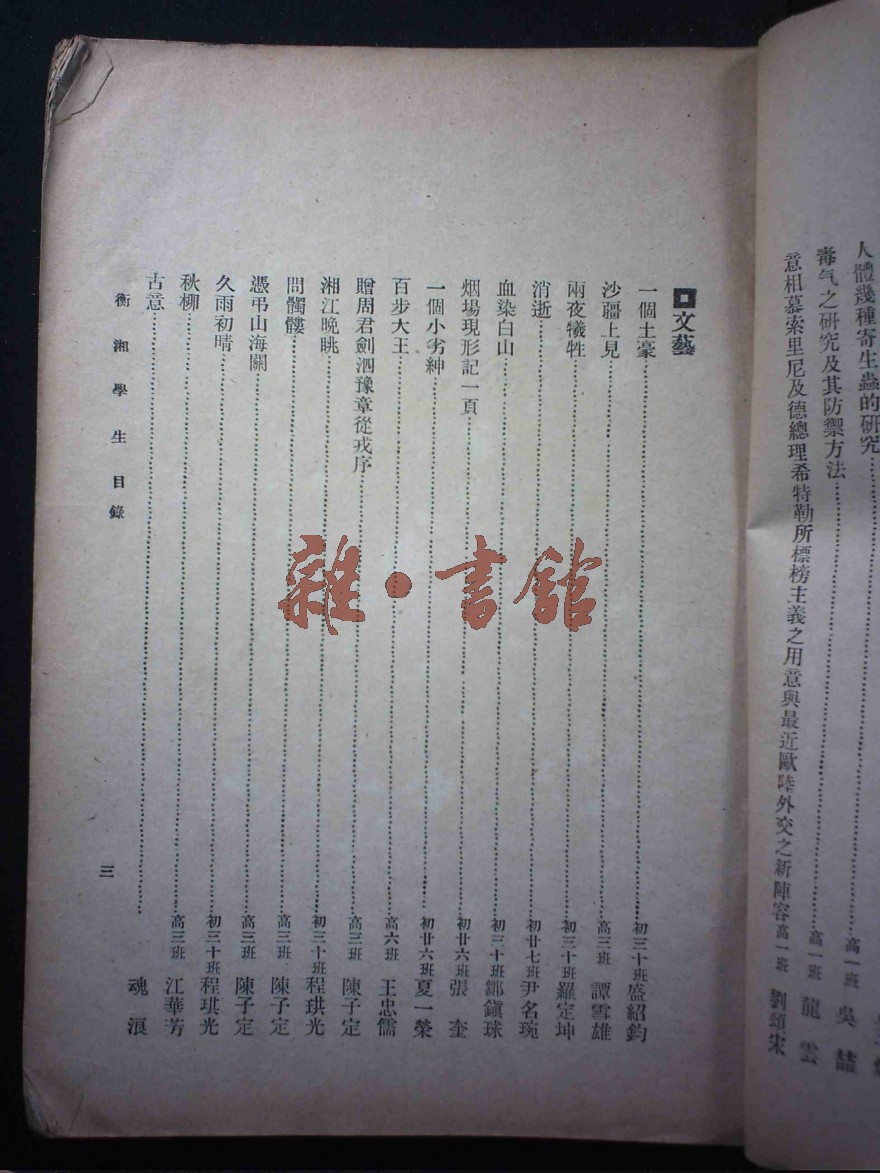 人體幾種寄生蟲的研究
毒气之研究及其防禦方法 高一班 吳喆
意相慕索里尼及德總理希特勒所標榜主義之用意與最近歐陸外交之新陣容 高一班 龍雲
高一班 劉頌宋
文藝
一個土豪 初三十班 盛紹鈞
沙疆上見 高三班 譚雪雄
兩夜犧牲 初三十班 羅定坤
消逝 初廿七班 尹名琬
血染白山 初三十班 鄒鎭球
烟場現形記一頁 初廿六班 張奎
一個小劣紳 初廿六班 夏一榮
百步大王 高六班 王忠儒
贈周君劍泗豫章從戎序 高三班 陳子定
湘江晚眺 初三十班 程珙光
問髑髏 高三班 陳子定
憑弔山海關 高三班 陳子定
久雨初晴 初三十班 程琪光
秋柳 高三班 江華芳
古意 魂浪
衡湘學生目錄
三
雜·書館